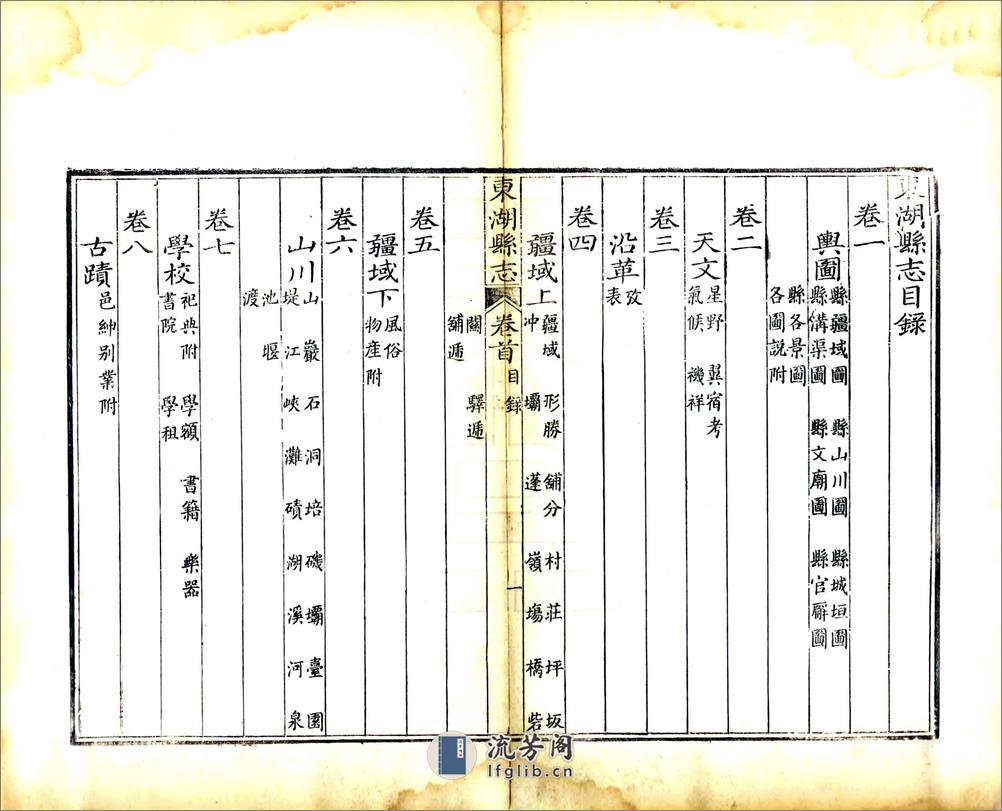 東湖縣志目錄
卷一
輿圖
縣疆域圖 縣山川圖 縣城垣圖
縣溝渠圖 縣文廟圖 縣官廨圖
縣各景圖
各圖說附
卷二
天文
星野 翼宿考
氣候 禨祥
卷三
沿革
攷
表
卷四
疆域上
疆域 形勝 舖分 村 莊 坪 坂
冲 壩 蓬 嶺 塲 橋 砦
東湖縣志 卷首 目錄 一
關 驛遞
舖遞
卷五
疆域下
風俗
物産附
卷六
山川
山 巖 石 洞 培 磯 壩 臺 園
堤 江 峽 灘 磧 湖 溪 河 泉
池 堰
渡
卷七
學校
祀典附 學額 書籍 樂器
書院 學租
卷八
古蹟
邑紳别業附
流芳阁
lfglib.cn